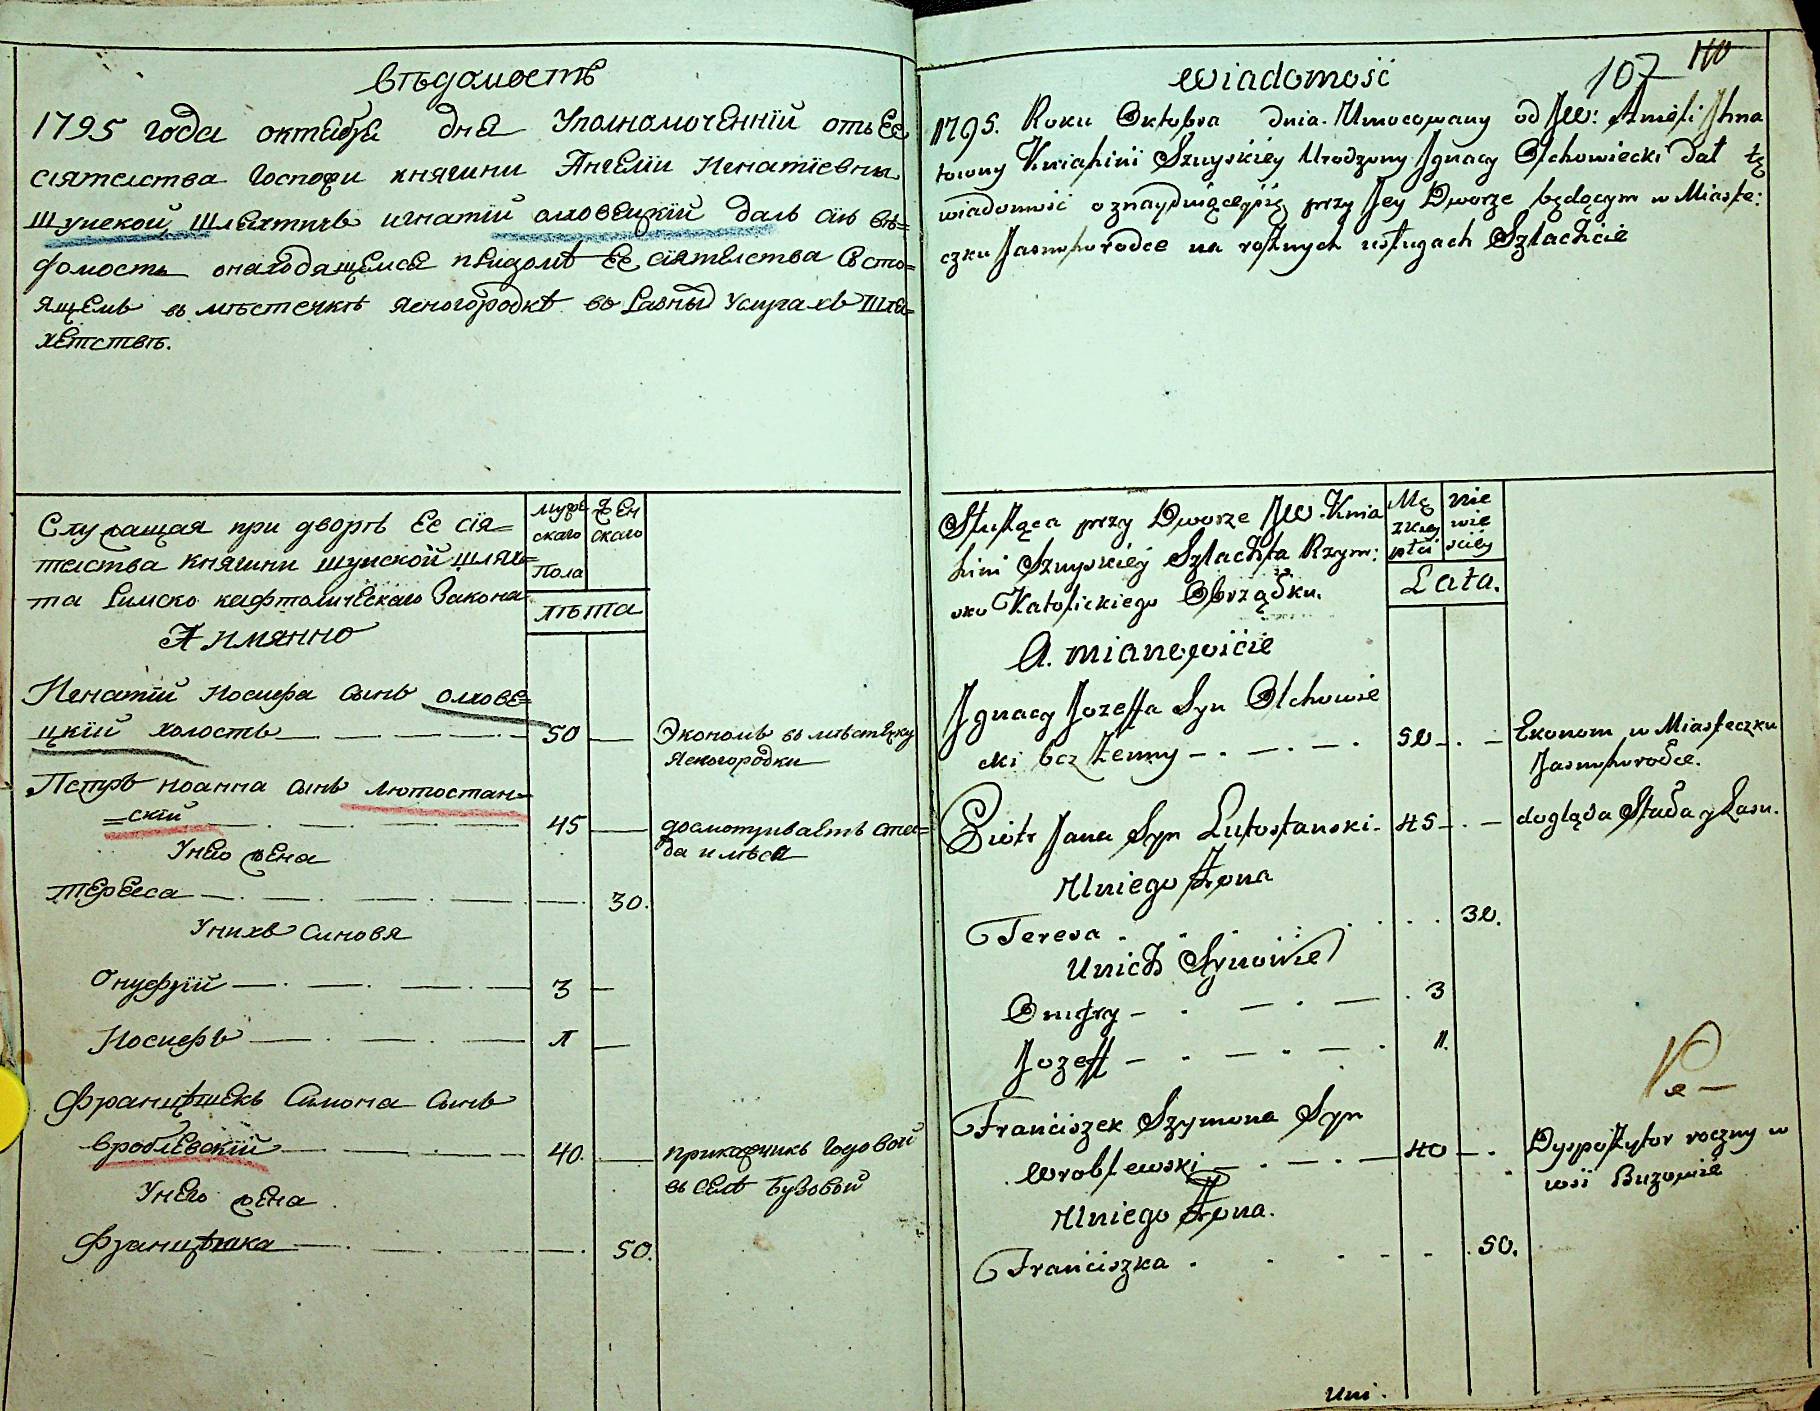 вѣдомость
1795 года октября дня Уполномоченнїй отъ Ее
сіятелства Госпожи княгини Ангелїи Игнатїевны
Шуйской, Шляхтичъ игнатїй олховецкїй далъ сїѣ вѣ=
домость онаходящемся придворѣ Ее сіятелства Всто=
ящемъ въ мѣстечкѣ Ясногородкѣ въ разных услугахъ шля=
хетствѣ.
Служащая при дворѣ Ее сїя=
телства княгини шуйской шлях=
та римско кафтолическаго Закона
А имянно
муже
скаго
Пола
жен
скаго
лѣта
Игнатїй иосифа сынъ олхове=
цкїй холостъ — 50 —
Экономъ въ мѣстечку
Ясногородки
Петръ иоанна сынъ лютостан=
=скїй — 45 —
досмотриваетъ ста=
да и лѣса
Унего жена
тереса — 30.
Унихъ синовя
Онуфрїй — 3 —
Иосифъ — 1 —
Францѣшекъ Симона сынъ
вроблевскїй — 40. —
прикажчикъ годовой
въ селѣ Бузовой
Унего жена
Францѣшка — 50.
wiadomość
107 110
1795. Roku Oktobra dnia. Umocowany od JW: Anieli Ihna
towny Kniahini Szuyskiey Urodzony Jgnacy Olchowiecki dał tę
wiadomość o znayduiąceyśię przy Jey Dworze będącym w Miaste:
czku Jasnohorodce na rożnych usługach Szlachcie
Służąca przy Dworze JW Knia
hini Szuyskiey Szlachta Rzym:
sko Katolickiego Obrządku.
A. mianowićie
Mę
zkiey
płci
nie
wie
sciey
Lata.
Jgnacy Jozeffa Syn Olchowie
cki bez Żenny — . — . — . 50 — . —
Ekonom w Miasteczku
Jasnohorodce.
Piotr Jana Syn Lutostanski. 45 — . —
dogląda Stada y Lasu.
Uniego Żona
Teresa . . . . 30.
Unich Synowie
Onufry — . — . — . 3
Jozeff — . — . — . 1.
Franciszek Szymona Syn
Wroblewski — . — . — 40 — .
Dyspozytor roczny w
wsi Buzowie
Uniego Żona.
Franciszka . . - - - . 50.
Uni.